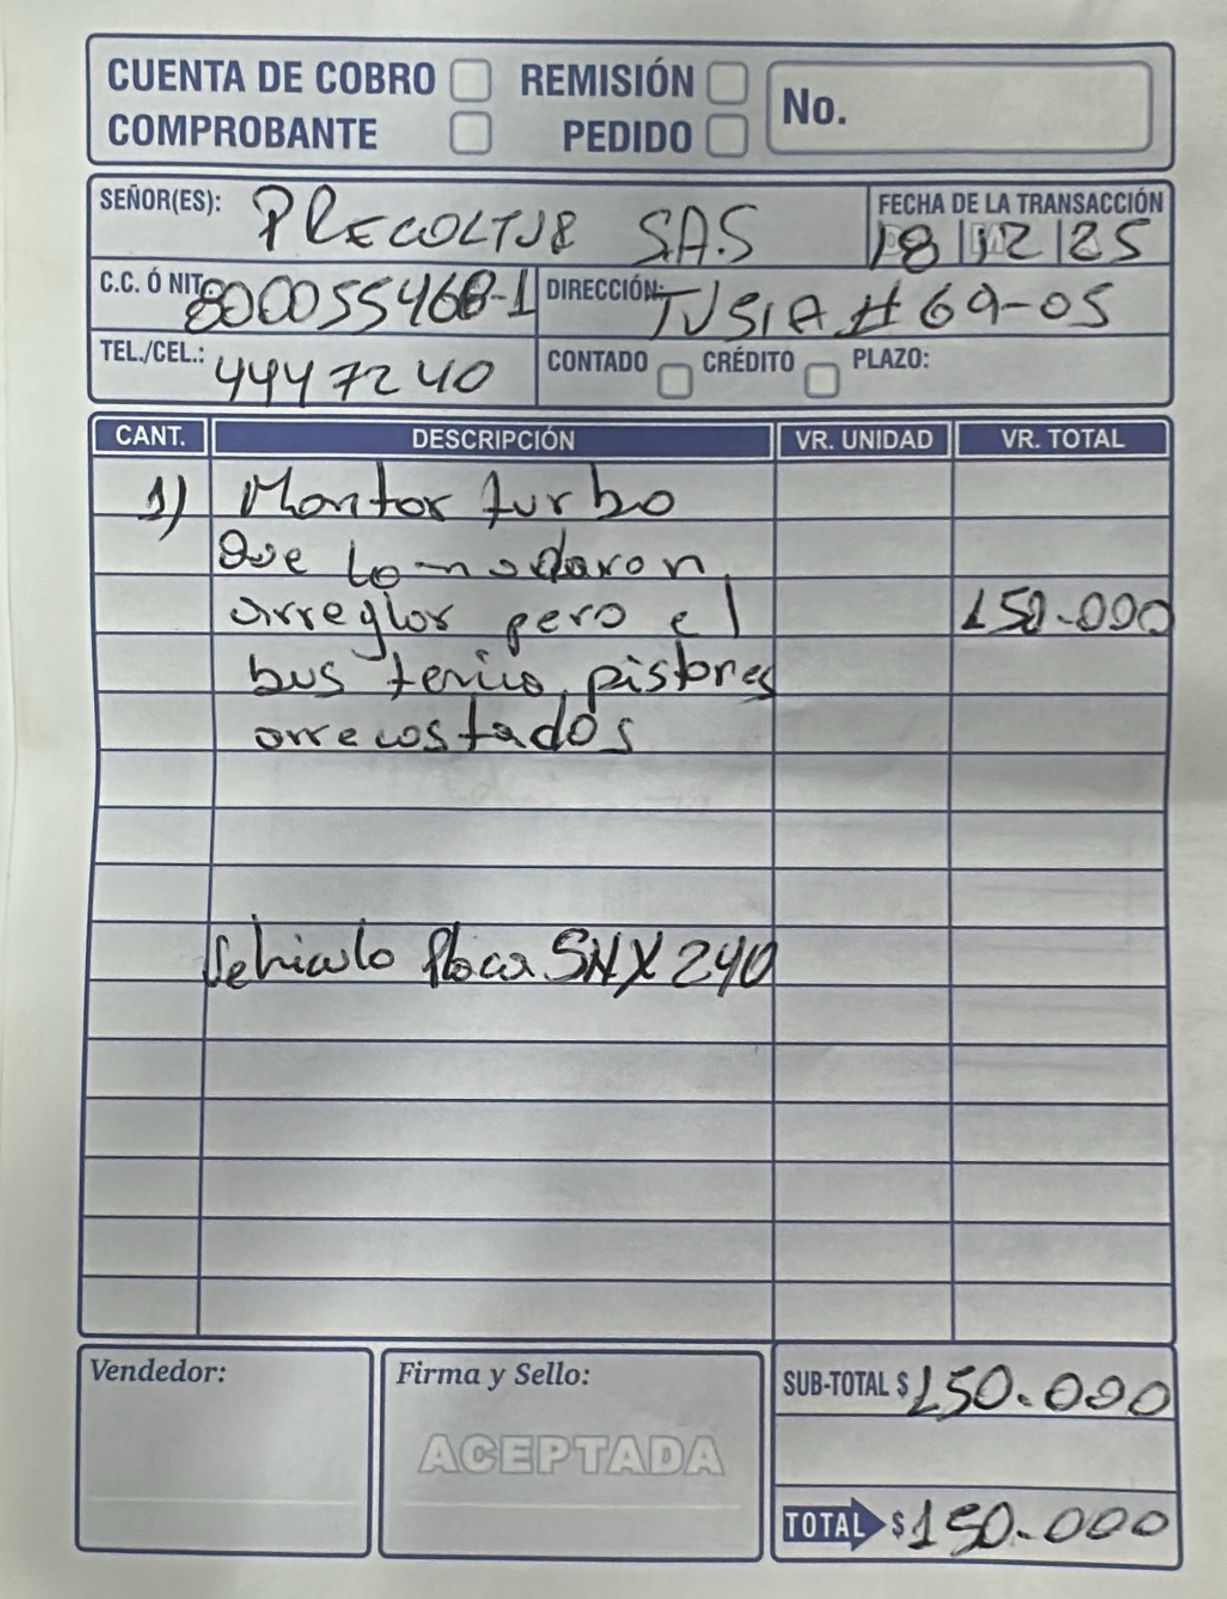 CUENTA DE COBRO REMISIÓN No.
COMPROBANTE PEDIDO
SEÑOR(ES): PRECOLTUR S.A.S FECHA DE LA TRANSACCIÓN
18 12 25
C.C. Ó NIT. 800055468-1 DIRECCIÓN: TV51A # 69-05
TEL./CEL.: 4447240 CONTADO CRÉDITO PLAZO:
CANT. DESCRIPCIÓN VR. UNIDAD VR. TOTAL
1) Montar turbo
Que lo mandaron
arreglar pero el 150.000
bus tenia pistones
arrecostados
Vehiculo Placa SNX 240
Vendedor: Firma y Sello: SUB-TOTAL $ 150.000
ACEPTADA
TOTAL $ 150.000